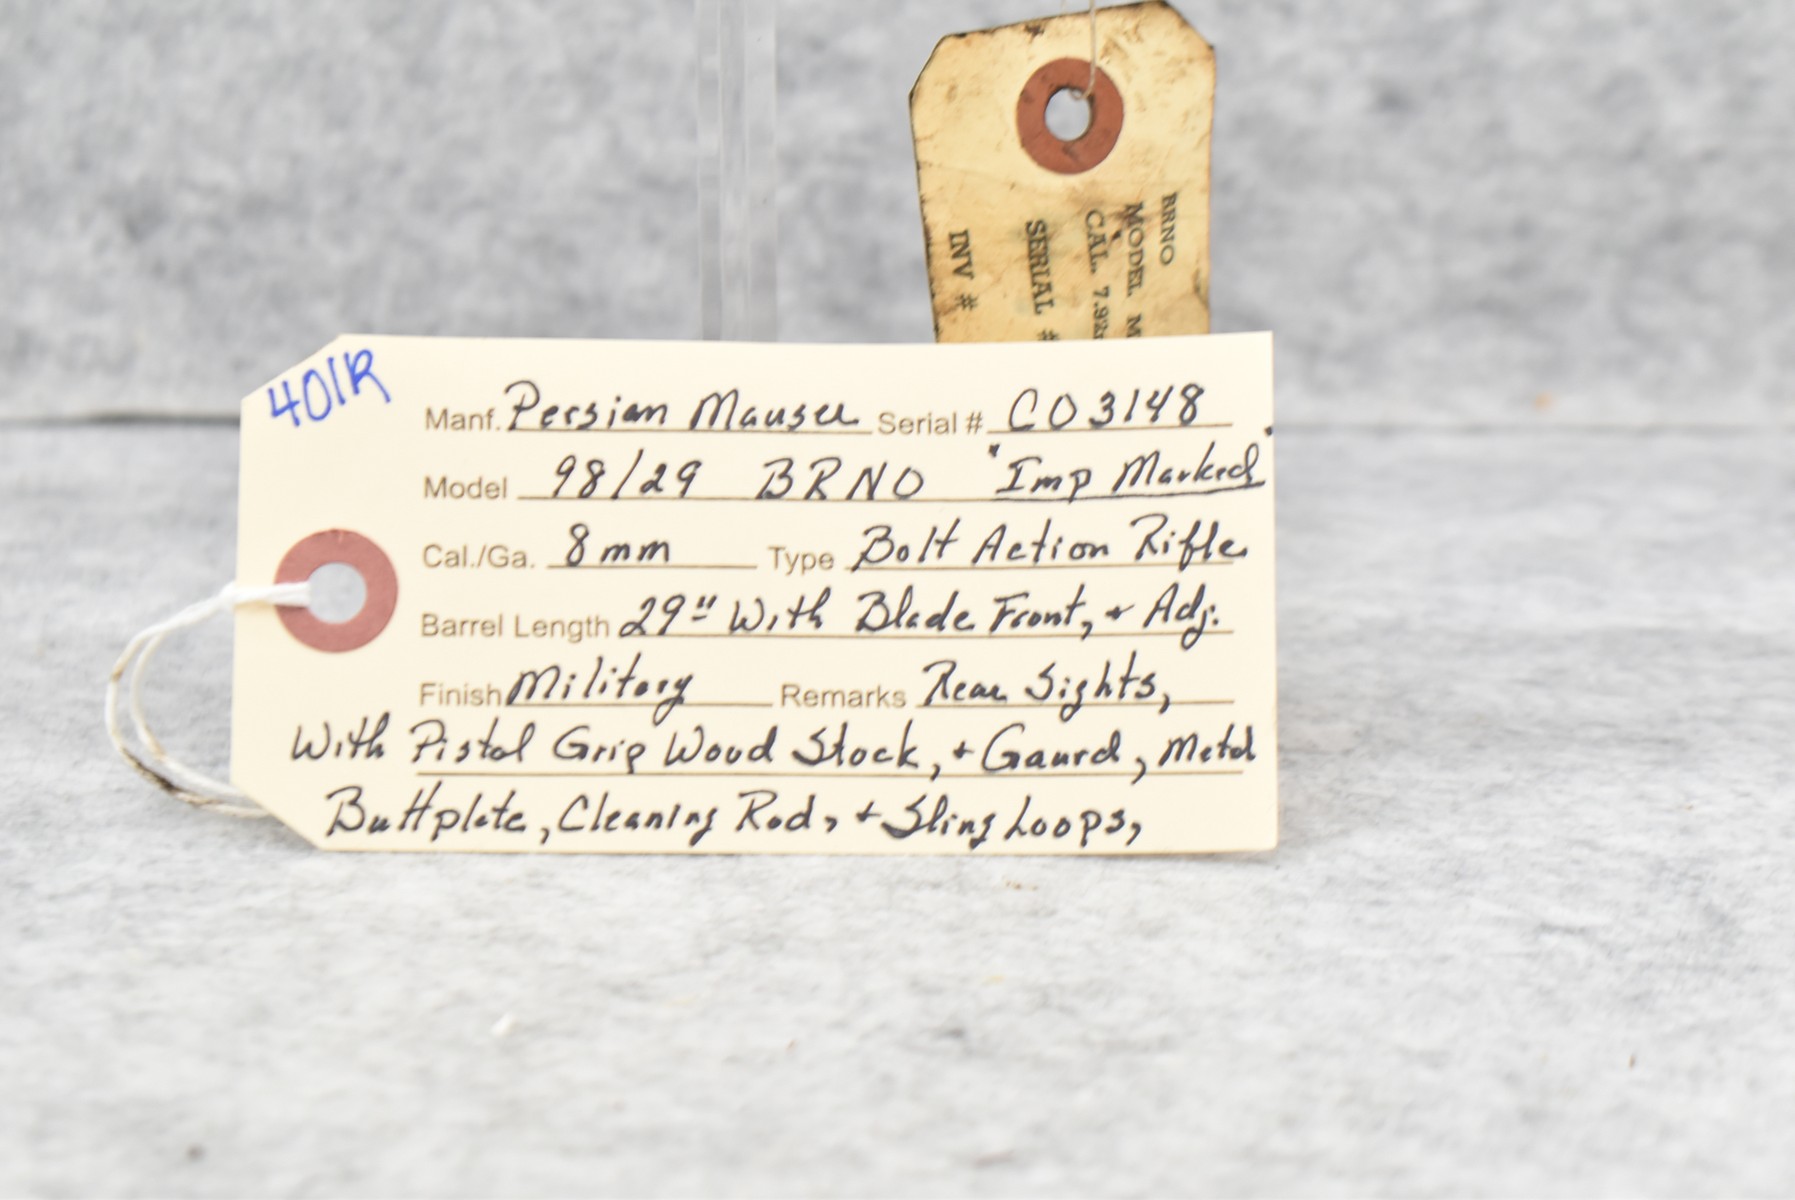 BRNO
MODEL M
CAL. 7.92
SERIAL #
INV #
401R
Manf. Persian Mauser Serial # CO3148
Model 98/29 BRNO "Imp Marked"
Cal./Ga. 8mm Type Bolt Action Rifle
Barrel Length 29" With Blade Front, + Adj.
Finish Military Remarks Rear Sights,
With Pistol Grip Wood Stock, + Gaurd, Metal
Buttplate, Cleaning Rod, + Sling Loops,